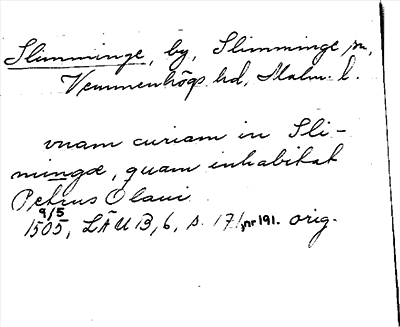 Slimminge, by, Slimminge sn,
Vemmenhögs hd, Malm. l.
vnam curiam in Sli-
mingæ, quam inhabitat
Petrus Olaui
9/5
1505, LÄUB, 6, s. 171, nr 191. orig.